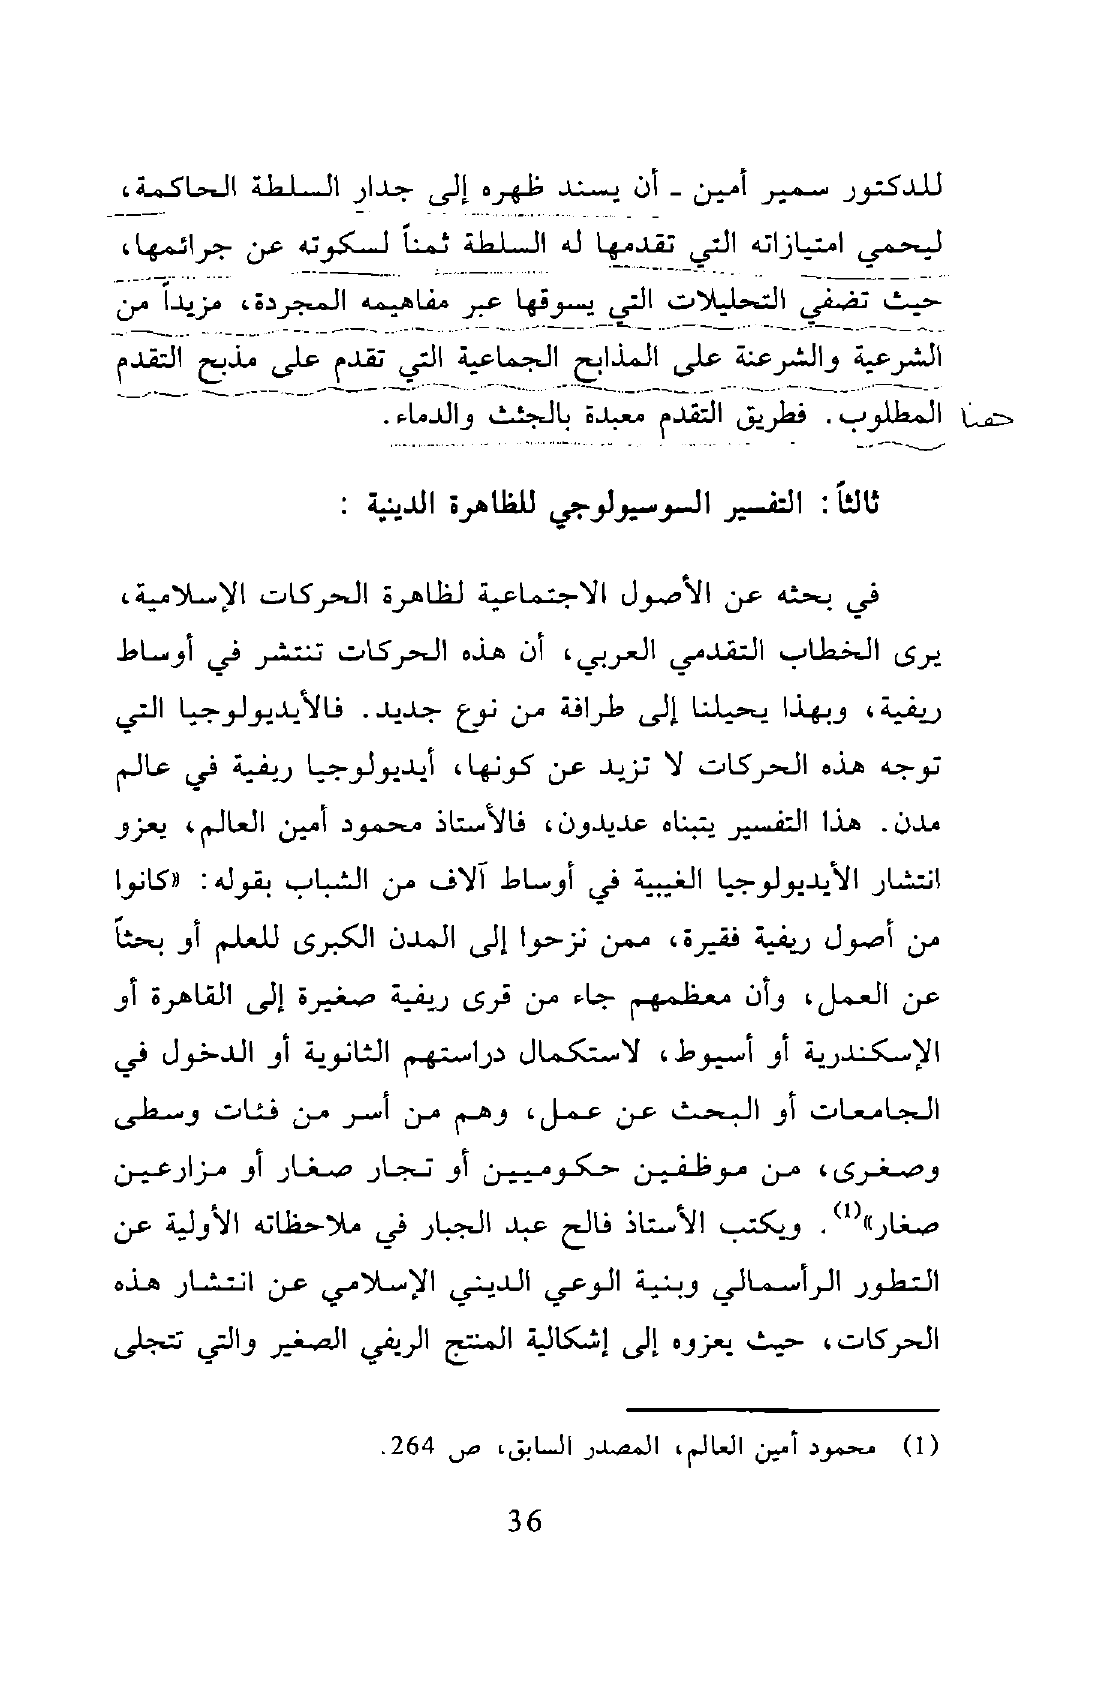 للدكتور سمير أمين - أن يسند ظهره إلى جدار السلطة الحاكمة،
ليحمي امتيازاته التي تقدمها له السلطة ثمناً لسكوته عن جرائمها،
حيث تضفي التحليلات التي يسوقها عبر مفاهيمه المجردة، مزيداً من
الشرعية والشرعنة على المذابح الجماعية التي تقدم على مذبح التقدم
المطلوب. فطريق التقدم معبدة بالجثث والدماء.
ثالثاً: التفسير السوسيولوجي للظاهرة الدينية :
في بحثه عن الأصول الاجتماعية لظاهرة الحركات الإسلامية،
يرى الخطاب التقدمي العربي، أن هذه الحركات تنتشر في أوساط
ريفية، وبهذا يحيلنا إلى طرافة من نوع جديد. فالأيديولوجيا التي
توجه هذه الحركات لا تزيد عن كونها، أيديولوجيا ريفية في عالم
مدن. هذا التفسير يتبناه عديدون، فالأستاذ محمود أمين العالم، يعزو
انتشار الأيديولوجيا الغيبية في أوساط آلاف من الشباب بقوله: «كانوا
من أصول ريفية فقيرة، ممن نزحوا إلى المدن الكبرى للعلم أو بحثاً
عن العمل، وأن معظمهم جاء من قرى ريفية صغيرة إلى القاهرة أو
الإسكندرية أو أسيوط، لاستكمال دراستهم الثانوية أو الدخول في
الجامعات أو البحث عن عمل، وهم من أسر من فئات وسطى
وصغرى، من موظفين حكوميين أو تجار صغار أو مزارعين
صغار»(1). ويكتب الأستاذ فالح عبد الجبار في ملاحظاته الأولية عن
التطور الرأسمالي وبنية الوعي الديني الإسلامي عن انتشار هذه
الحركات، حيث يعزوه إلى إشكالية المنتج الريفي الصغير والتي تتجلى
(1) محمود أمين العالم، المصدر السابق، ص 264.
36